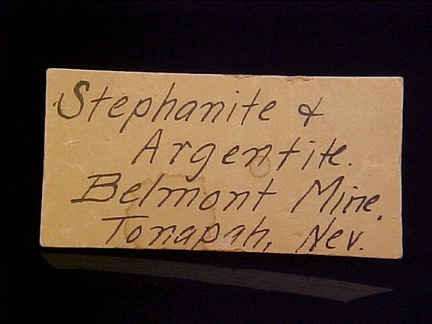 Stephanite &
Argentite.
Belmont Mine,
Tonapah, Nev.